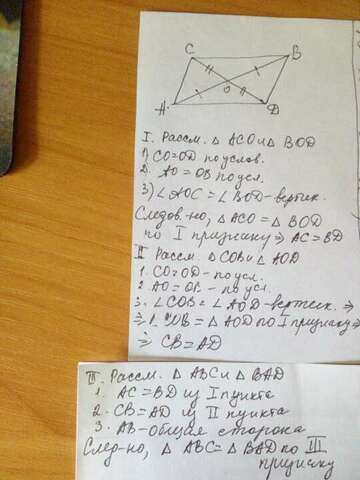 C
B
O
A
D
I. Рассм. △ ACO и △ BOD
1) CO=OD по услов.
2. AO = OB по усл.
3) ∠AOC = ∠BOD-вертик.
Следов-но, △ ACO = △ BOD
по I признаку ⇒ AC=BD
II Рассм. △ COB и △ AOD
1. CO=OD - по усл.
2 AO=OB - по усл.
3. ∠COB = ∠AOD-вертик. ⇒
⇒ △ COB = △ AOD по I признаку ⇒
⇒ CB=AD
III. Рассм. △ ABC и △ BAD
1. AC=BD из I пункта
2. CB=AD из II пункта
3. AB-общая сторона
След-но, △ ABC= △ BAD по III
признаку